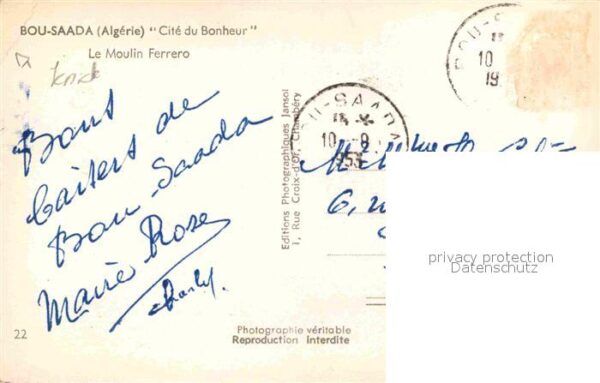 BOU-SAADA (Algérie) "Cité du Bonheur"
Le Moulin Ferrero
Bons
baisers de
Bou Saada
Marie Rose
Charly.
22
Editions Photographiques Jansol
1, Rue Croix-d'Or, Chambéry
BOU-S
10
19
OU-SAADA
10-9
1953
6,
Photographie véritable
Reproduction interdite
privacy protection
Datenschutz